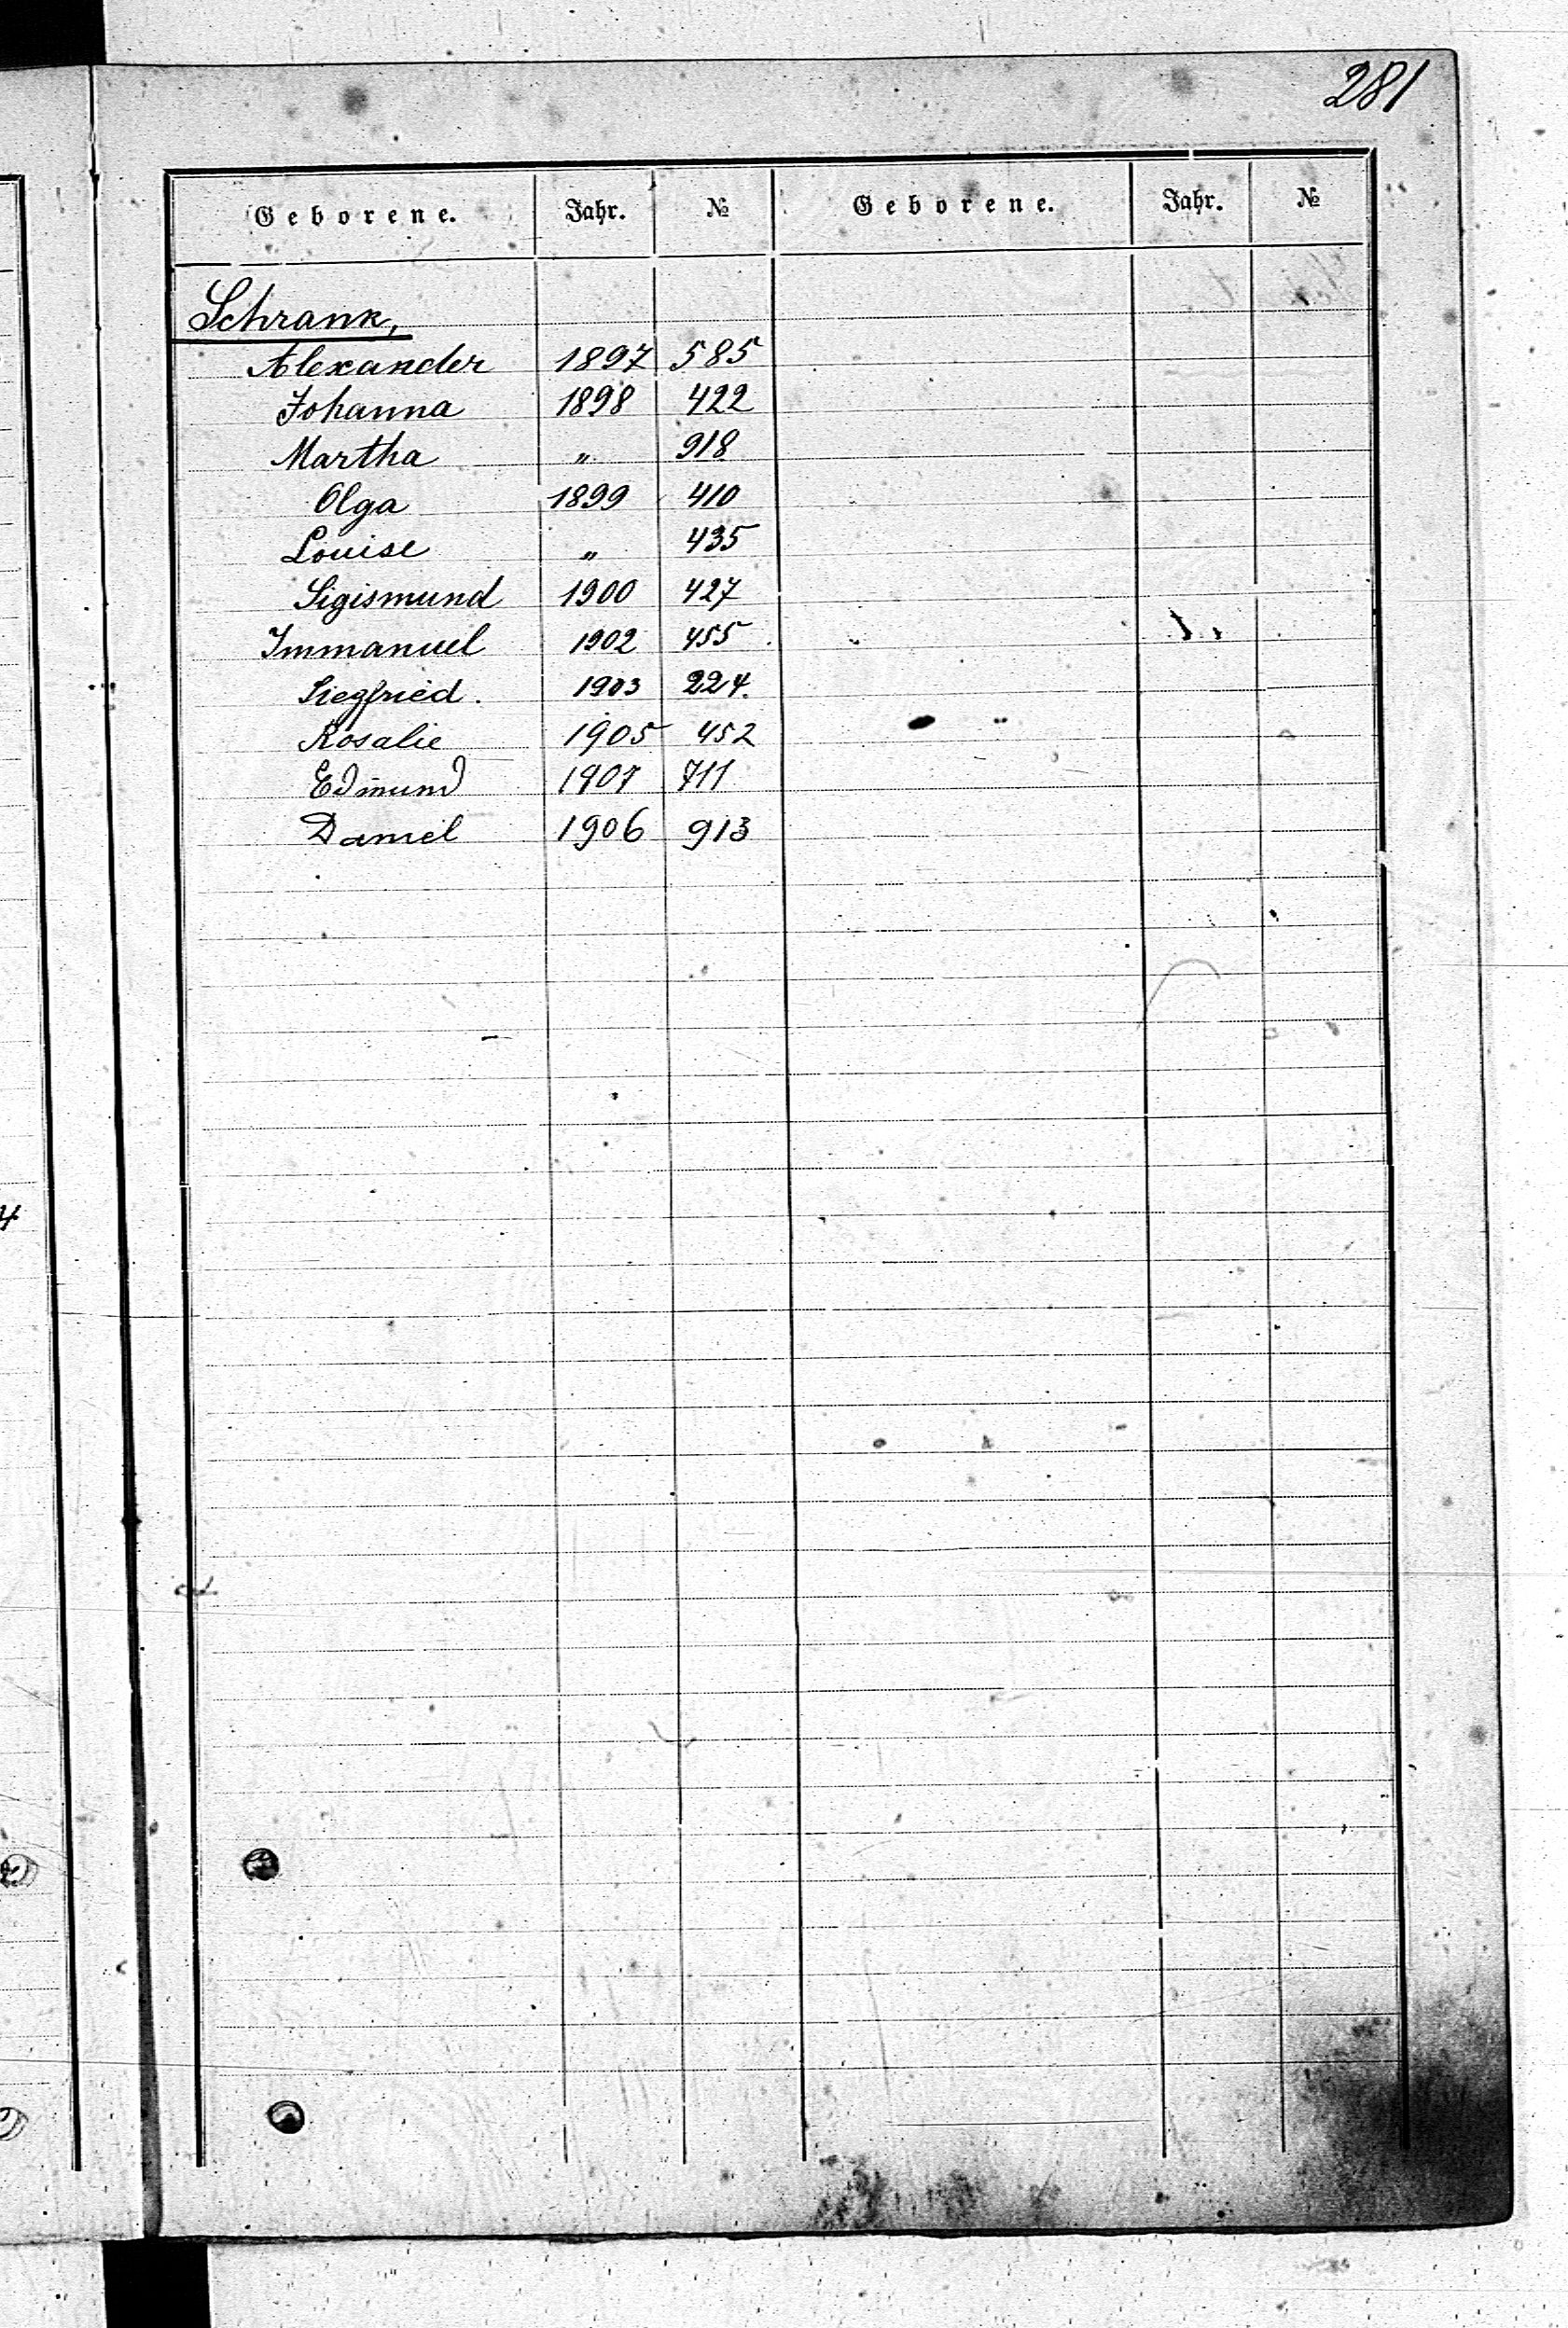 281
Geborene. Jahr. № Geborene. Jahr. №
Schrank,
Alexander 1897 585
Johanna 1898 422
Martha " 918
Olga 1899 410
Louise " 435
Sigismund 1900 427
Immanuel 1902 455
Siegfried. 1903 224.
Rosalie 1905 452
Edmund 1907 711
Daniel 1906 913
4